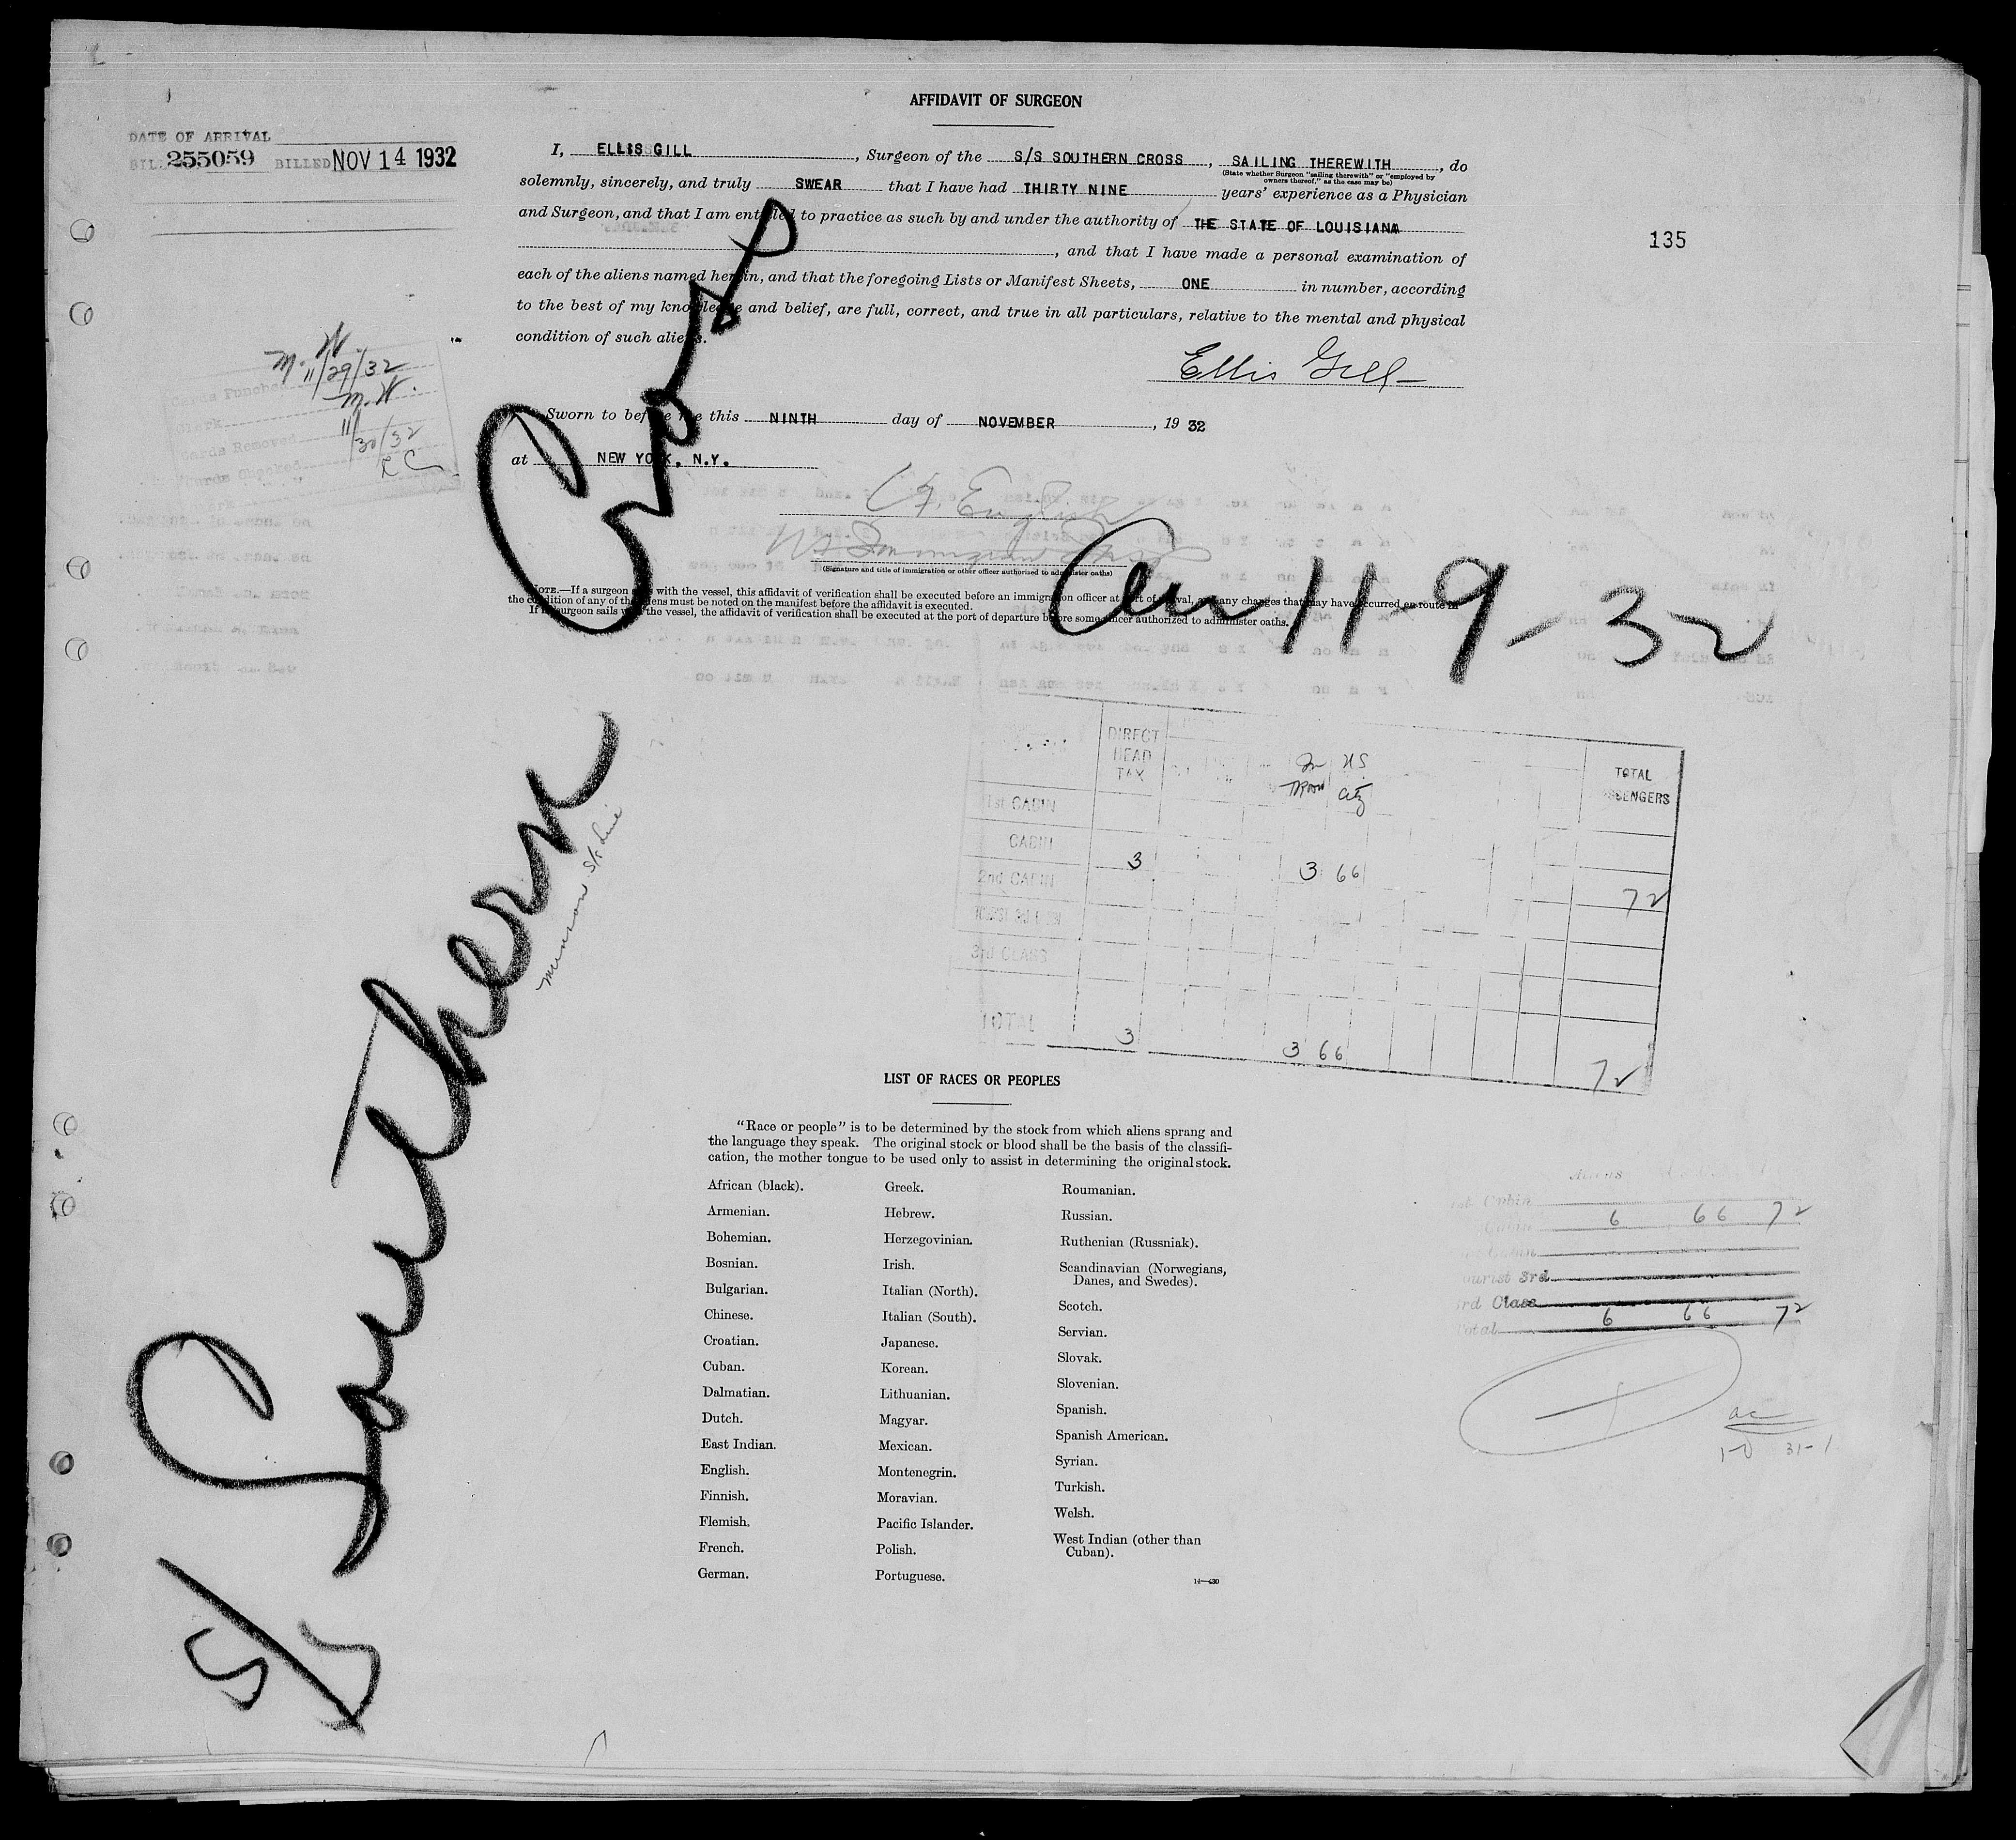 AFFIDAVIT OF SURGEON
DATE OF ARRIVAL
BIL. 255059 BILLED NOV 14 1932
I, ELLIS GILL, Surgeon of the S/S SOUTHERN CROSS, SAILING THEREWITH, do
(State whether Surgeon "sailing therewith" or "employed by
owners thereof," as the case may be)
solemnly, sincerely, and truly SWEAR that I have had THIRTY NINE years' experience as a Physician
and Surgeon, and that I am entitled to practice as such by and under the authority of THE STATE OF LOUISIANA
, and that I have made a personal examination of
each of the aliens named herein, and that the foregoing Lists or Manifest Sheets, ONE in number, according
to the best of my knowledge and belief, are full, correct, and true in all particulars, relative to the mental and physical
condition of such aliens.
135
Ellis Gill
M. W.
11/29/32
Cards Punched
M. W.
Clerk
11/30/32
Cards Removed
Cards Checked
Sworn to before me this NINTH day of NOVEMBER, 19 32
at NEW YORK, N.Y.
(Signature and title of immigration or other officer authorized to administer oaths)
NOTE.—If a surgeon sails with the vessel, this affidavit of verification shall be executed before an immigration officer at port of arrival, as any changes that may have occurred en route in
the condition of any of the aliens must be noted on the manifest before the affidavit is executed.
If no surgeon sails with the vessel, the affidavit of verification shall be executed at the port of departure before some officer authorized to administer oaths.
S/S Southern Cross
Munson S/S Line
Arr 11-9-32
DIRECT HEAD TAX
In Tran
US City
TOTAL PASSENGERS
1st CABIN
CABIN 3 3 66 72
2nd CABIN
3rd CLASS
TOTAL 3 3 66 72
LIST OF RACES OR PEOPLES
"Race or people" is to be determined by the stock from which aliens sprang and
the language they speak. The original stock or blood shall be the basis of the classifi-
cation, the mother tongue to be used only to assist in determining the original stock.
African (black).
Armenian.
Bohemian.
Bosnian.
Bulgarian.
Chinese.
Croatian.
Cuban.
Dalmatian.
Dutch.
East Indian.
English.
Finnish.
Flemish.
French.
German.
Greek.
Hebrew.
Herzegovinian.
Irish.
Italian (North).
Italian (South).
Japanese.
Korean.
Lithuanian.
Magyar.
Mexican.
Montenegrin.
Moravian.
Pacific Islander.
Polish.
Portuguese.
Roumanian.
Russian.
Ruthenian (Russniak).
Scandinavian (Norwegians,
Danes, and Swedes).
Scotch.
Servian.
Slovak.
Slovenian.
Spanish.
Spanish American.
Syrian.
Turkish.
Welsh.
West Indian (other than
Cuban).
14—430
Aliens
1st Cabin
Cabin 6 66 72
Tourist 3rd
3rd Class
Total 6 66 72